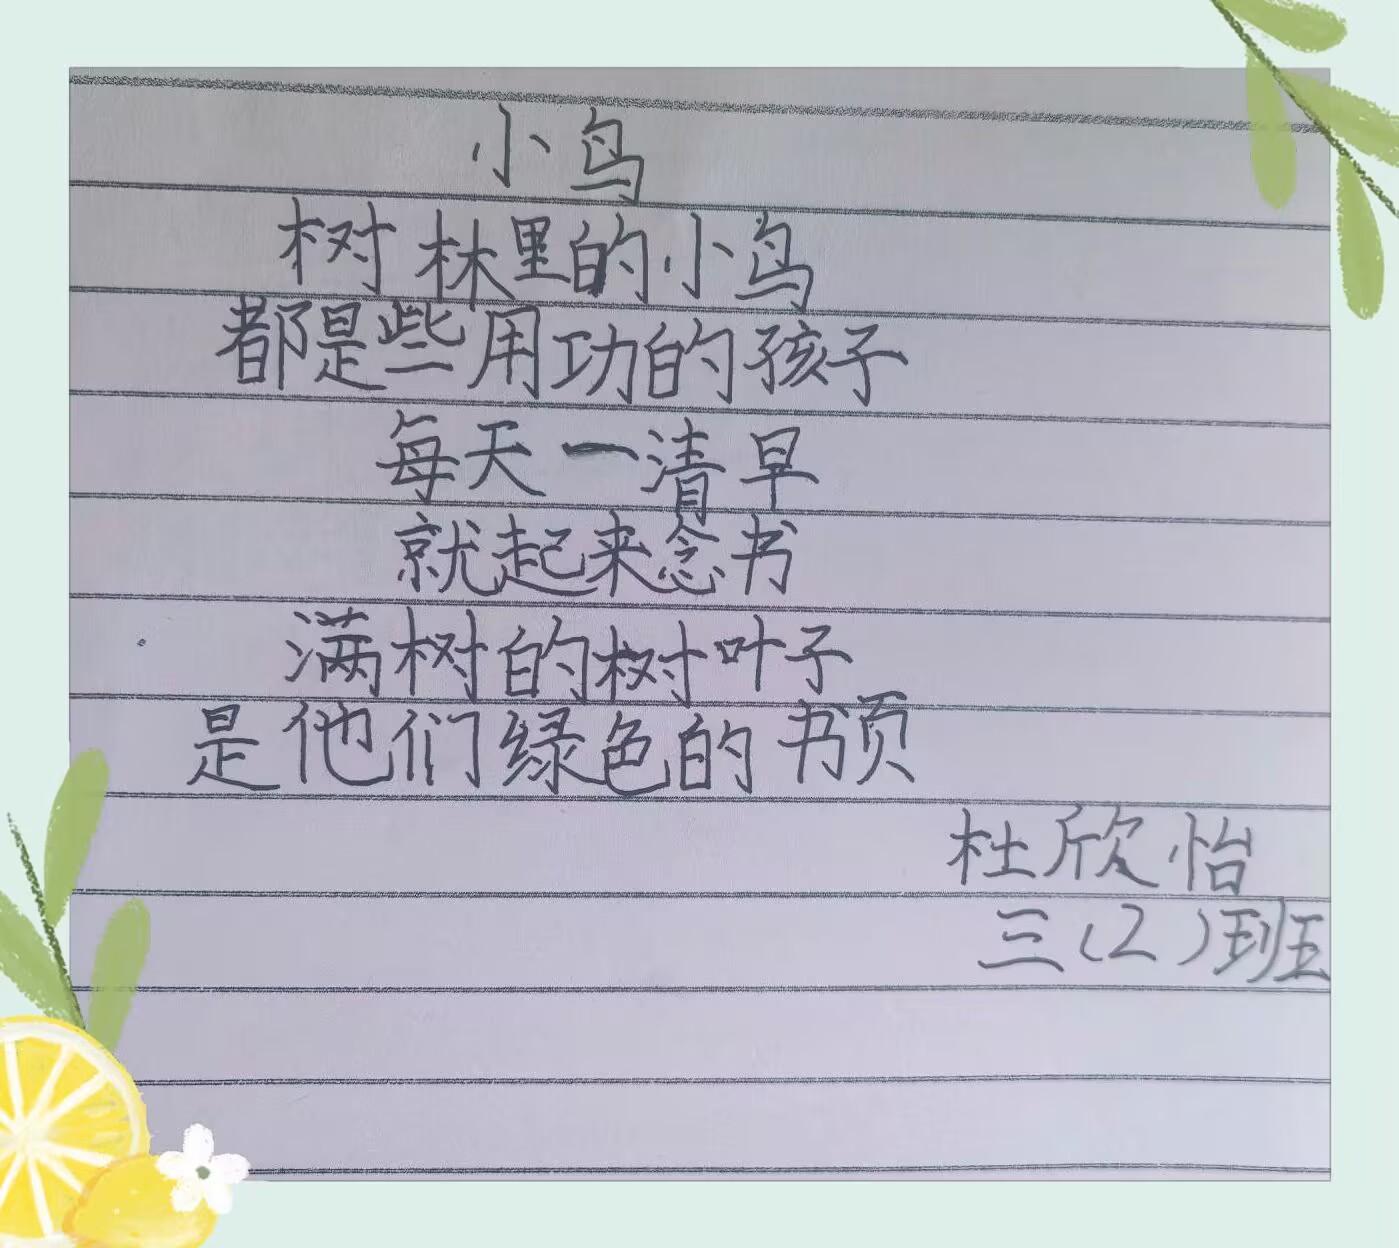 小鸟
树林里的小鸟
都是些用功的孩子
每天一清早
就起来念书
满树的树叶子
是他们绿色的书页
杜欣怡
三(2)班